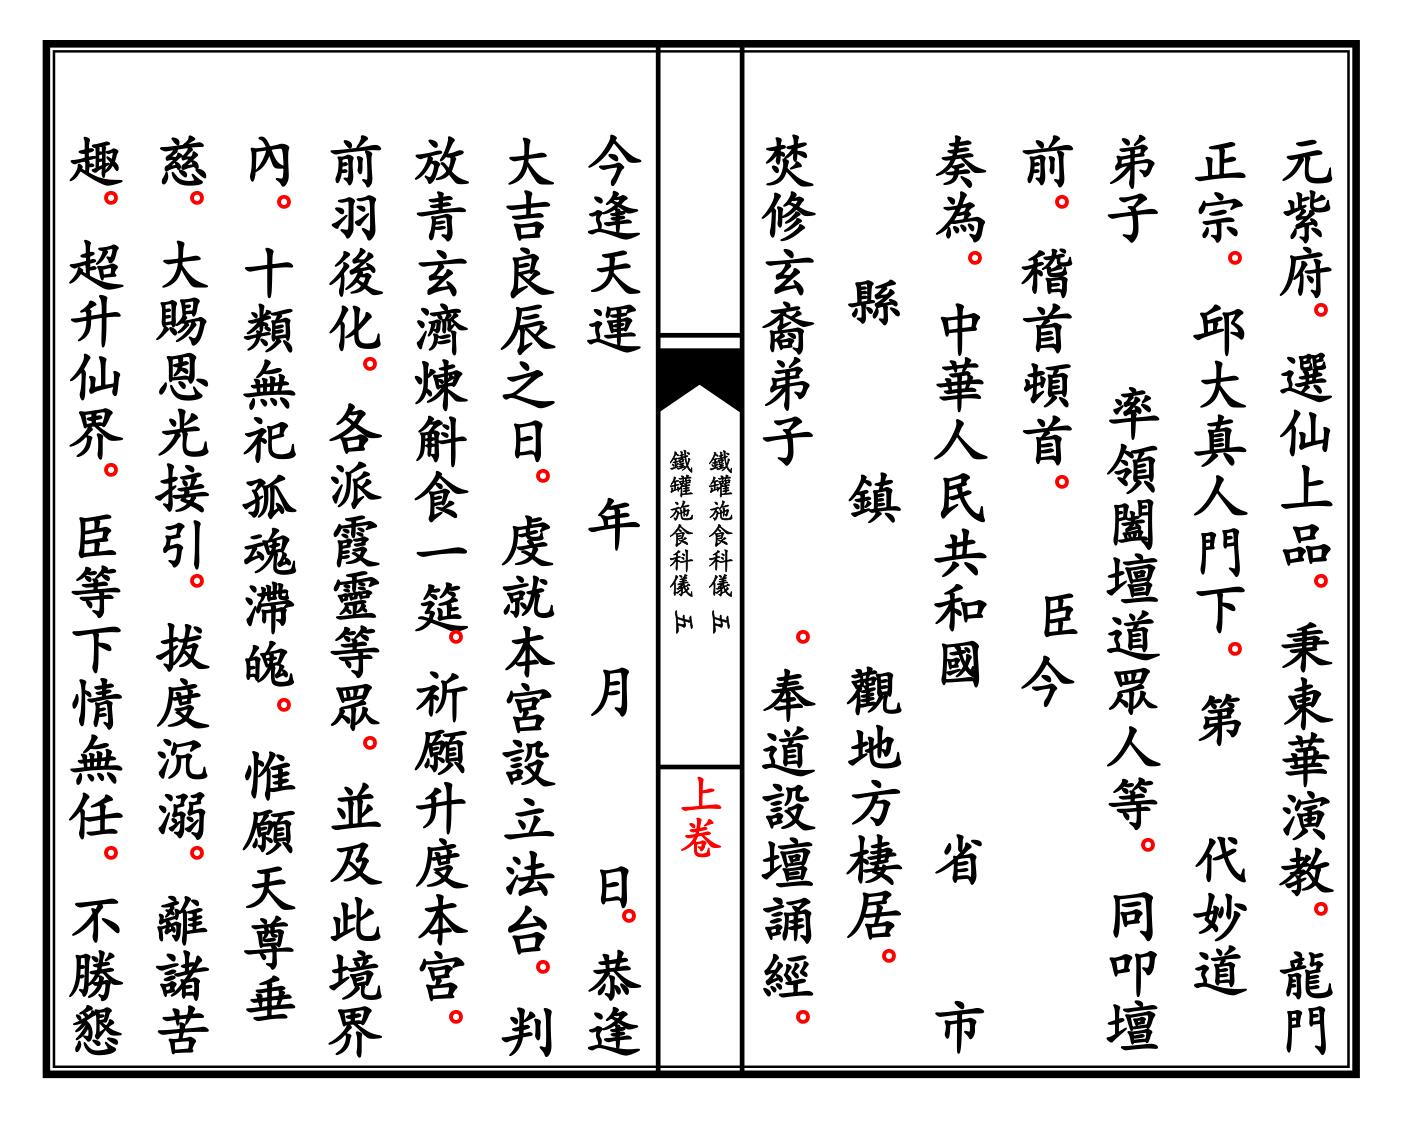 元紫府。選仙上品。秉東華演教。龍門
正宗。邱大真人門下。第　代妙道
弟子　率領闔壇道眾人等。同叩壇
前。稽首頓首。臣今
奏為。中華人民共和國　省　市
縣　鎮　觀地方棲居。
焚修玄裔弟子　。奉道設壇誦經。
鐵罐施食科儀 五
鐵罐施食科儀 五
上卷
今逢天運　年　月　日。恭逢
大吉良辰之日。虔就本宮設立法台。判
放青玄濟煉斛食一筵。祈願升度本宮。
前羽後化。各派霞靈等眾。並及此境界
內。十類無祀孤魂滯魄。惟願天尊垂
慈。大賜恩光接引。拔度沉溺。離諸苦
趣。超升仙界。臣等下情無任。不勝懇